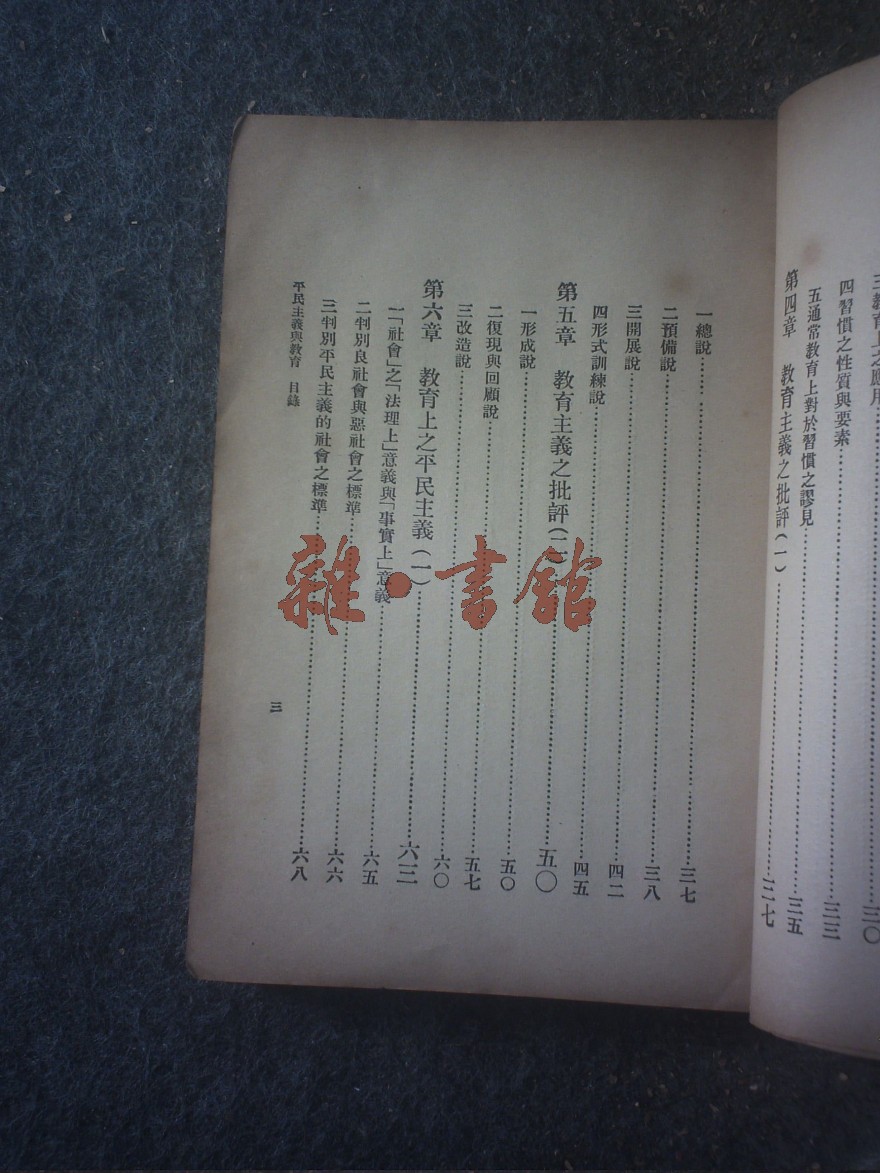 三教育上之應用……三〇
四習慣之性質與要素……三三
五通常教育上對於習慣之謬見……三五
第四章　教育主義之批評(一)……三七
一總說……三七
二預備說……三八
三開展說……四二
四形式訓練說……四五
第五章　教育主義之批評(二)……五〇
一形成說……五〇
二復現與回顧說……五七
三改造說……六〇
第六章　教育上之平民主義(一)……六三
一「社會」之「法理上」意義與「事實上」意義……六五
二判別良社會與惡社會之標準……六六
三判別平民主義的社會之標準……六八
平民主義與教育　目錄
三
雜·書館